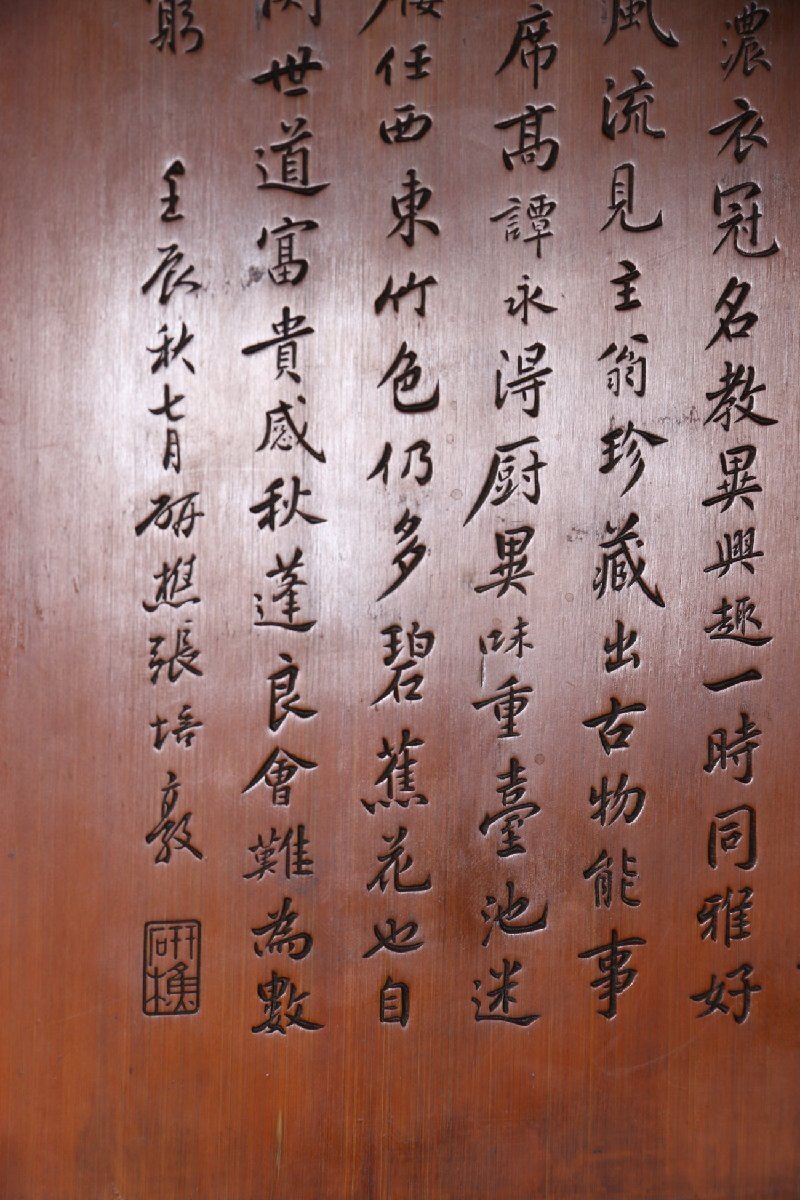 濃衣冠名教異興趣一時同雅好
風流見主翁珍藏出古物能事
席高譚永得厨異味重臺池迷
任西東竹色仍多碧蕉花也自
世道富貴感秋蓬良會難為數
躬
壬辰秋七月研樵張培敦
研樵